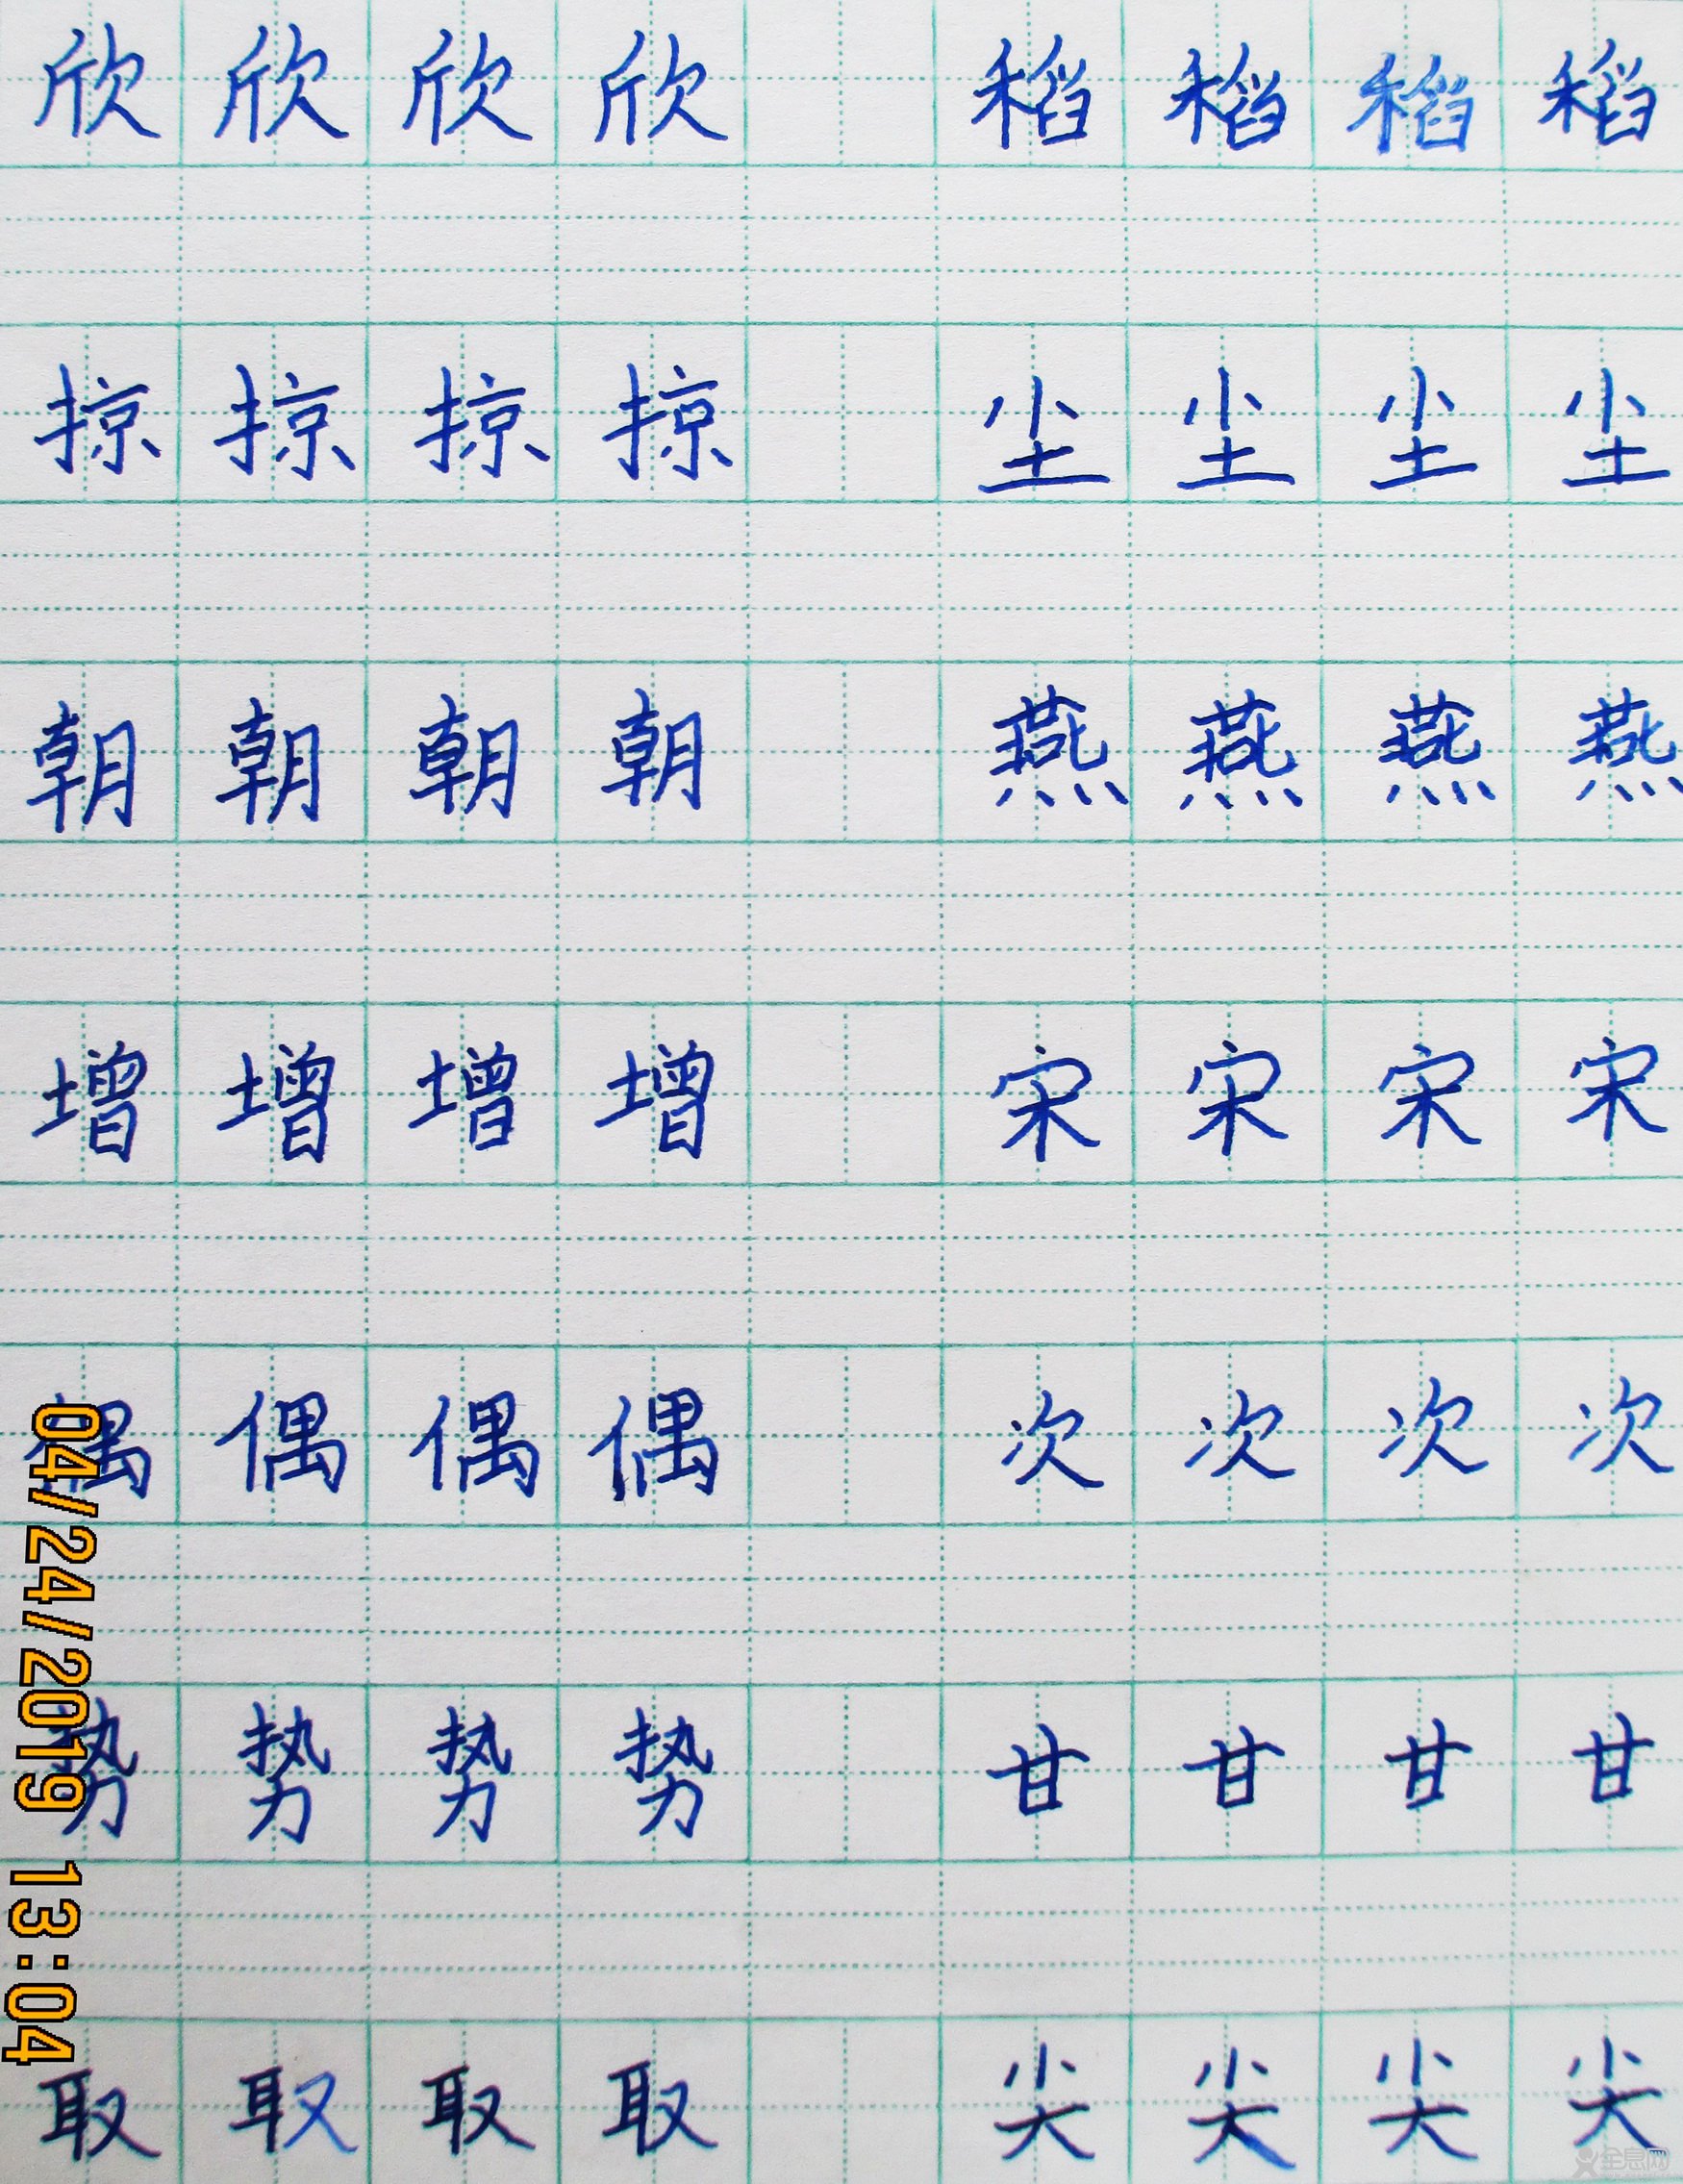 欣 欣 欣 欣 稻 稻 稻 稻
掠 掠 掠 掠 尘 尘 尘 尘
朝 朝 朝 朝 燕 燕 燕 燕
增 增 增 增 宋 宋 宋 宋
偶 偶 偶 偶 次 次 次 次
势 势 势 势 甘 甘 甘 甘
取 取 取 取 尖 尖 尖 尖
04/24/2019 13:04
全息网